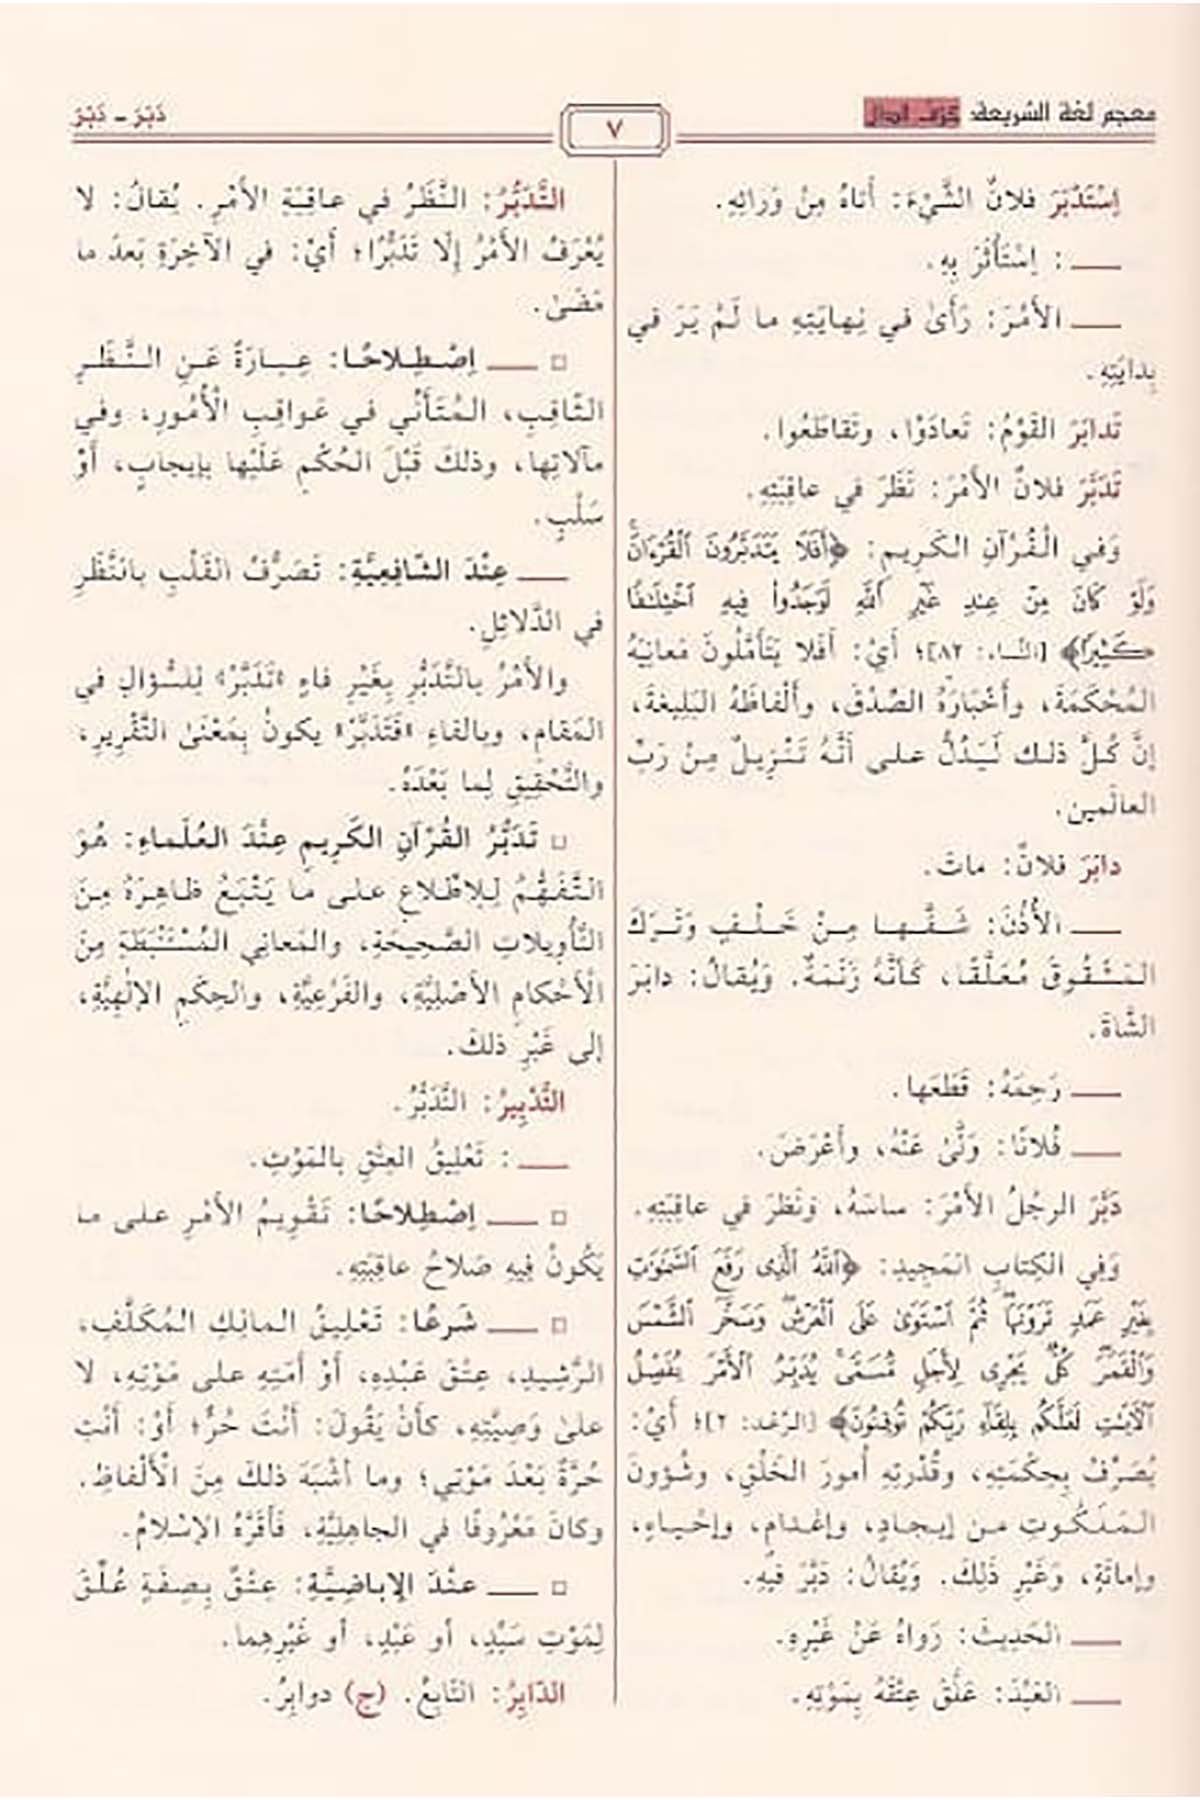 معجم لغة الشريعة: حرف الدال
٧
دَبَرَ - دَبَرَ
اِسْتَدْبَرَ فلانٌ الشَّيْءَ: أَتاهُ مِنْ وَرائِهِ.
ــــ : اِسْتَأْثَرَ بِهِ.
ــــ الأَمْرَ: رَأَىٰ في نِهايَتِهِ ما لَمْ يَرَ في
بِدايَتِهِ.
تَدابَرَ القَوْمُ: تَعادَوْا، وتَقاطَعُوا.
تَدَبَّرَ فلانٌ الأَمْرَ: نَظَرَ في عاقِبَتِهِ.
وَفي الْقُرْآنِ الكَرِيمِ: ﴿أَفَلَا يَتَدَبَّرُونَ ٱلْقُرْءَانَۚ
وَلَوْ كَانَ مِنْ عِندِ غَيْرِ ٱللَّهِ لَوَجَدُواْ فِيهِ ٱخْتِلَٰفًا
كَثِيرًا﴾ [النِّساء: ٨٢]؛ أَيْ: أَفَلا يَتَأَمَّلُونَ مَعانِيَهُ
المُحْكَمَةَ، وأَخْبارَهُ الصِّدْقَ، وأَلْفاظَهُ البَلِيغَةَ،
إنَّ كُلَّ ذلك لَيَدُلُّ على أَنَّهُ تَنْزِيلٌ مِنْ رَبِّ
العالَمين.
دابَرَ فلانٌ: ماتَ.
ــــ الأُذُنَ: شَقَّها مِنْ خَلْفٍ وَتَرَكَ
المَشْقُوقَ مُعَلَّقًا، كَأَنَّهُ زَنَمَةٌ. وَيُقالُ: دابَرَ
الشَّاةَ.
ــــ رَحِمَهُ: قَطَعَها.
ــــ فُلانًا: وَلَّىٰ عَنْهُ، وأَعْرَضَ.
دَبَّرَ الرجُلُ الأَمْرَ: ساسَهُ، ونَظَرَ في عاقِبَتِهِ.
وَفي الكِتابِ المَجِيدِ: ﴿ٱللَّهُ ٱلَّذِى رَفَعَ ٱلسَّمَٰوَٰتِ
بِغَيْرِ عَمَدٍ تَرَوْنَهَاۖ ثُمَّ ٱسْتَوَىٰ عَلَى ٱلْعَرْشِۖ وَسَخَّرَ ٱلشَّمْسَ
وَٱلْقَمَرَۖ كُلٌّ يَجْرِى لِأَجَلٍ مُّسَمًّىۚ يُدَبِّرُ ٱلْأَمْرَ يُفَصِّلُ
ٱلْآيَٰتِ لَعَلَّكُم بِلِقَآءِ رَبِّكُمْ تُوقِنُونَ﴾ [الرَّعْد: ٢]؛ أَيْ:
يُصَرِّفُ بِحِكْمَتِهِ، وقُدْرَتِهِ أُمورَ الخَلْقِ، وشُؤونَ
المَلَكُوتِ من إيجادٍ، وإعْدامٍ، وإحْياءٍ،
وإماتَةٍ، وَغَيْرِ ذَلِكَ. وَيُقالُ: دَبَّرَ فيهِ.
ــــ الحَدِيثَ: رَواهُ عَنْ غَيْرِهِ.
ــــ العَبْدَ: عَلَّقَ عِتْقَهُ بِمَوْتِهِ.
التَّدَبُّرُ: النَّظَرُ في عاقِبَةِ الأَمْرِ. يُقالُ: لا
يُعْرَفُ الأَمْرُ إلّا تَدَبُّرًا؛ أَيْ: في الآخِرَةِ بَعدَ ما
مَضَىٰ.
□ ــــ اِصْطِلاحًا: عِبارَةٌ عَنِ النَّظَرِ
الثّاقِبِ، المُتَأَنِّي في عَواقِبِ الأُمُورِ، وفي
مآلاتِها، وذلكَ قَبْلَ الحُكْمِ عَلَيْها بإيجابٍ، أَوْ
سَلْبٍ.
ــــ عِنْدَ الشّافِعِيَّةِ: تَصَرُّفُ القَلْبِ بالنَّظَرِ
في الدَّلائِلِ.
والأَمْرُ بالتَّدَبُّرِ بِغَيْرِ فاءٍ «تَدَبَّرْ» لِلسُّؤالِ في
المَقامِ، وبالفاءِ «فَتَدَبَّرْ» يكونُ بِمَعْنَىٰ التَّقْرِيرِ،
والتَّحْقِيقِ لِما بَعْدَهُ.
□ تَدَبُّرُ القُرْآنِ الكَرِيمِ عِنْدَ العُلَماءِ: هُوَ
التَّفَهُّمُ لِلاطِّلاعِ على ما يَتْبَعُ ظاهِرَهُ مِنَ
التَّأْوِيلاتِ الصَّحِيحَةِ، والمَعانِي المُسْتَنْبَطَةِ مِنَ
الأَحْكامِ الأَصْلِيَّةِ، والفَرْعِيَّةِ، والحِكَمِ الإلٰهِيَّةِ،
إلى غَيْرِ ذلكَ.
التَّدْبِيرُ: التَّدَبُّرُ.
ــــ : تَعْلِيقُ العِتْقِ بالمَوْتِ.
□ ــــ اِصْطِلاحًا: تَقْوِيمُ الأَمْرِ على ما
يَكُونُ فِيهِ صَلاحُ عاقِبَتِهِ.
□ ــــ شَرعًا: تَعْلِيقُ المالِكِ المُكَلَّفِ،
الرَّشِيدِ، عِتْقَ عَبْدِهِ، أَوْ أَمَتِهِ على مَوْتِهِ، لا
علىٰ وَصِيَّتِهِ، كأَنْ يَقُولَ: أَنْتَ حُرٌّ؛ أَوْ: أَنْتِ
حُرَّةٌ بَعْدَ مَوْتِي؛ وما أَشْبَهَ ذلكَ مِنَ الأَلْفاظِ.
وكانَ مَعْرُوفًا في الجاهِلِيَّةِ، فَأَقَرَّهُ الإسْلامُ.
□ ــــ عِنْدَ الإباضِيَّةِ: عِتْقٌ بِصِفَةٍ عُلِّقَ
لِمَوْتِ سَيِّدٍ، أو عَبْدٍ، أو غَيْرِهِما.
الدّابِرُ: التّابِعُ. (ج) دوابِرُ.